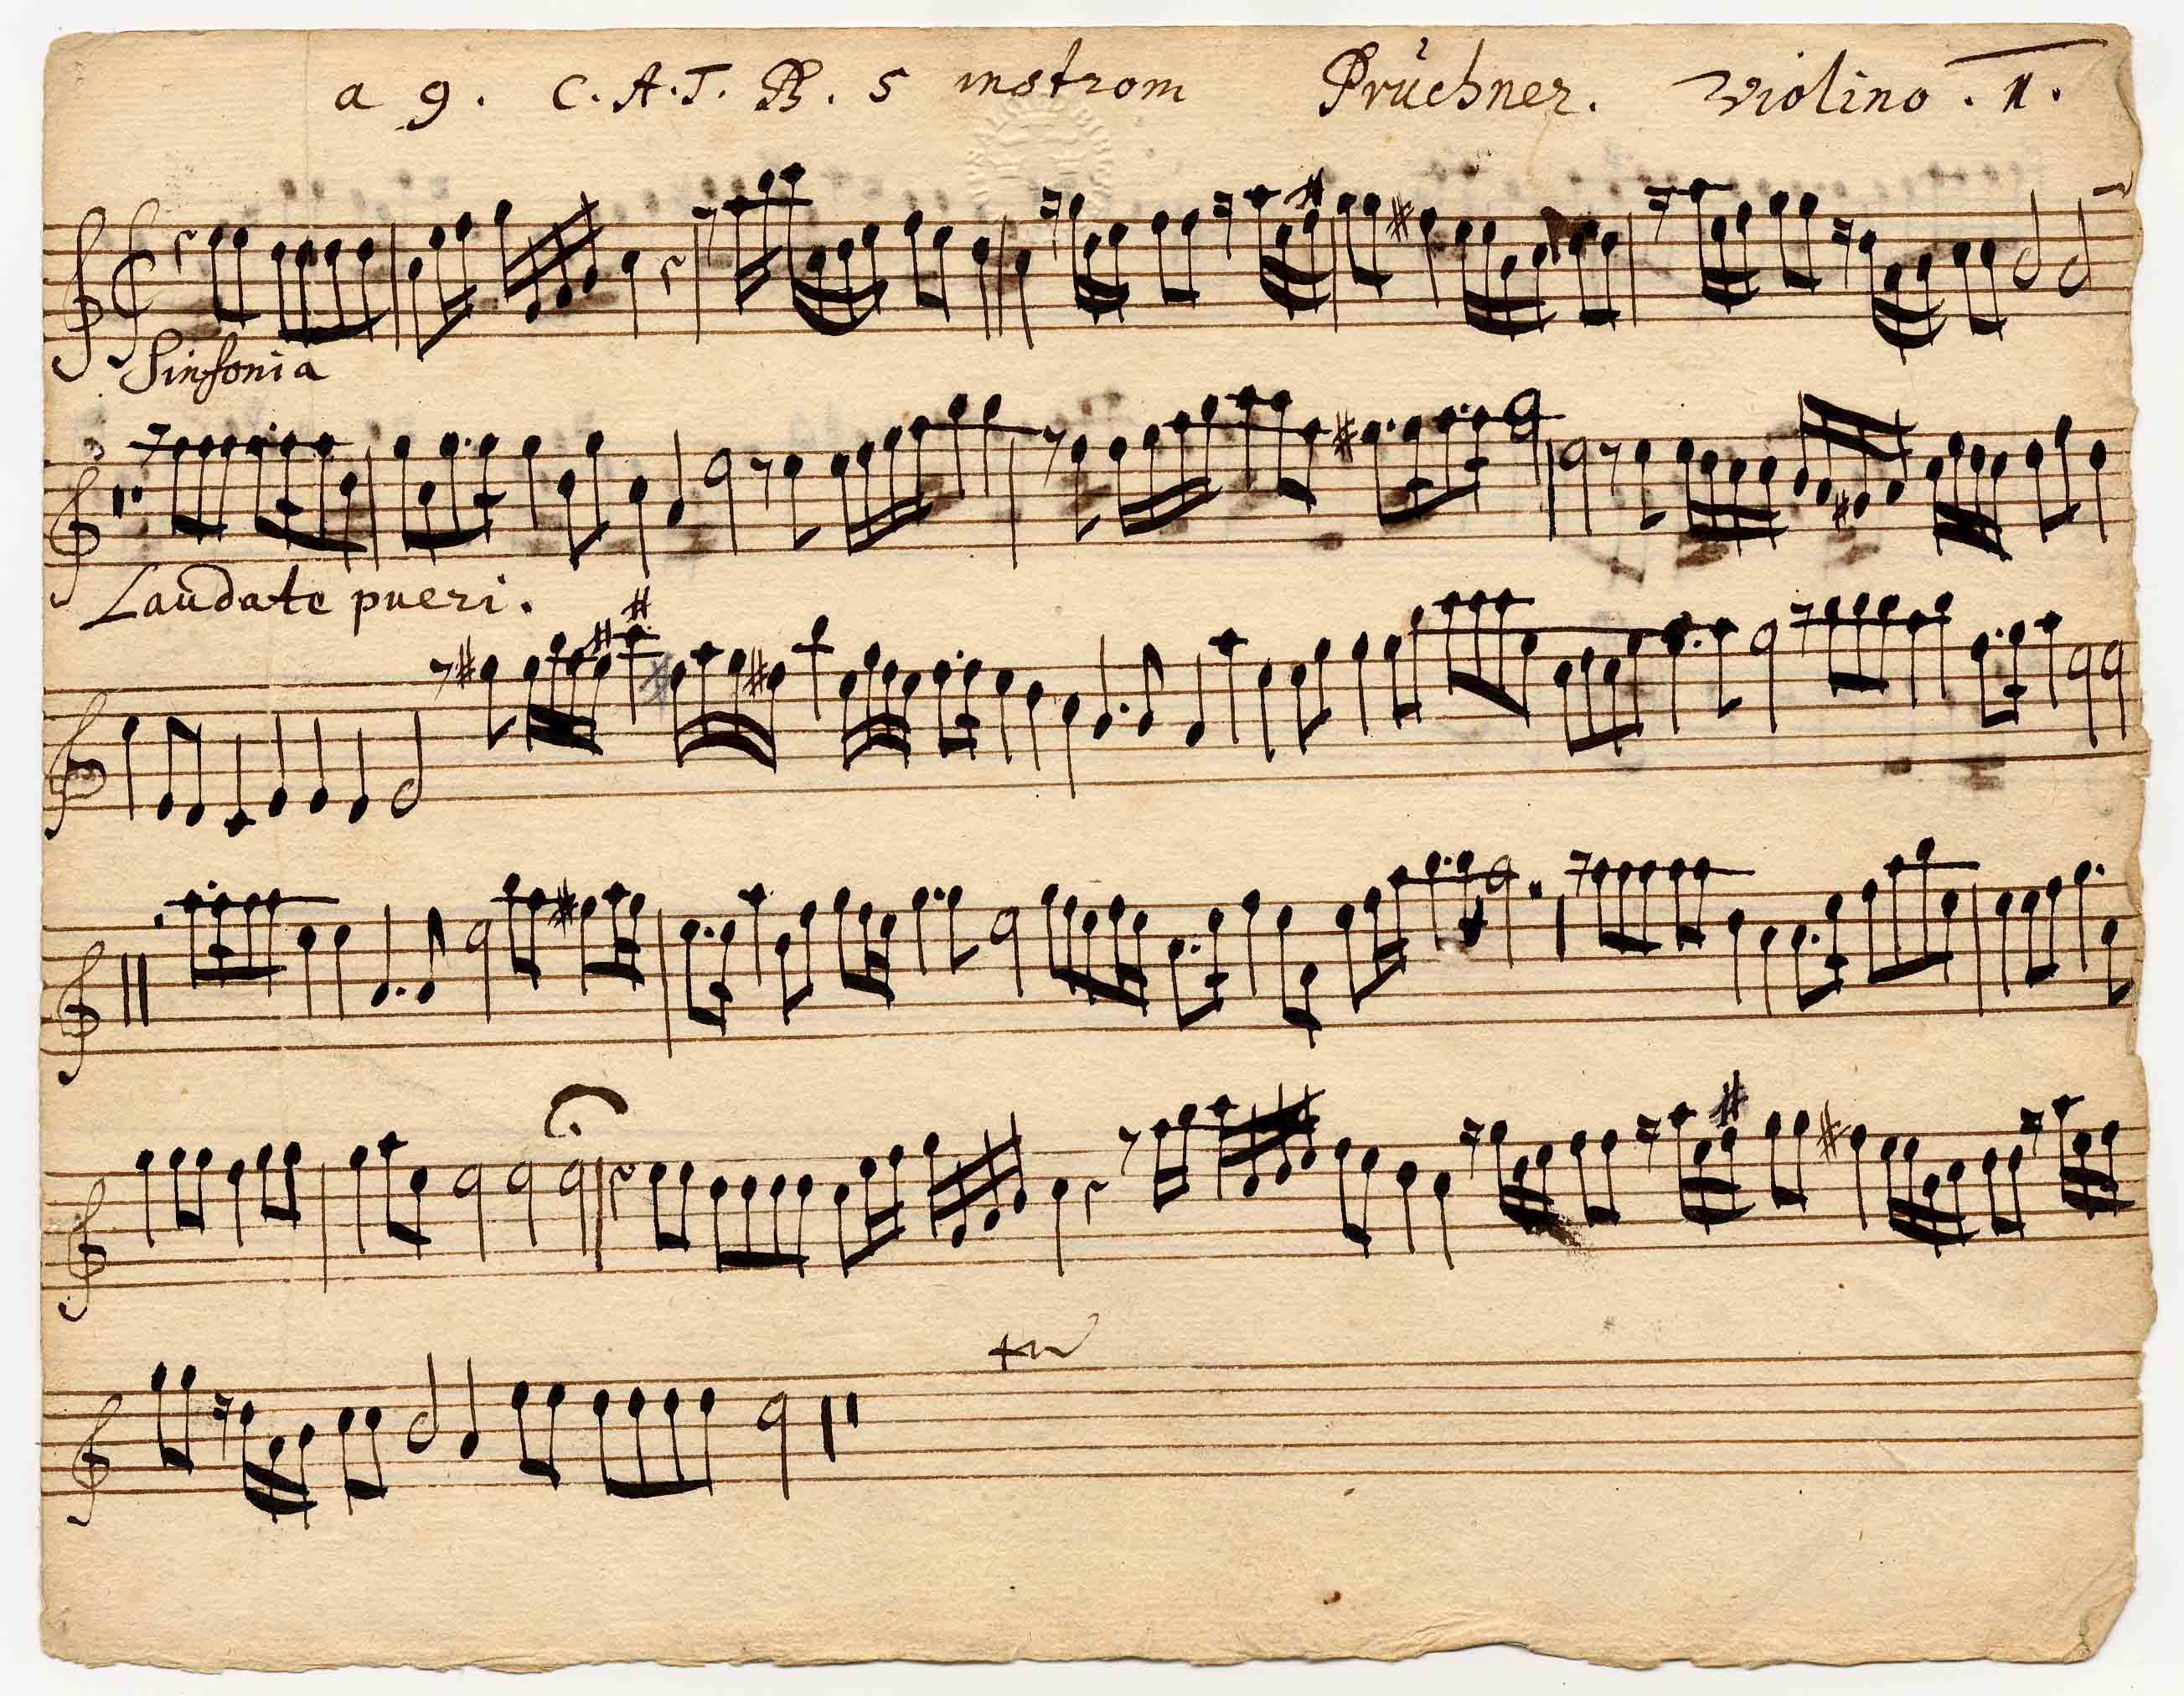 a 9. C. A. T. B. 5 instrom Prüchner. Violino. 1.
Sinfonia
Laudate pueri.